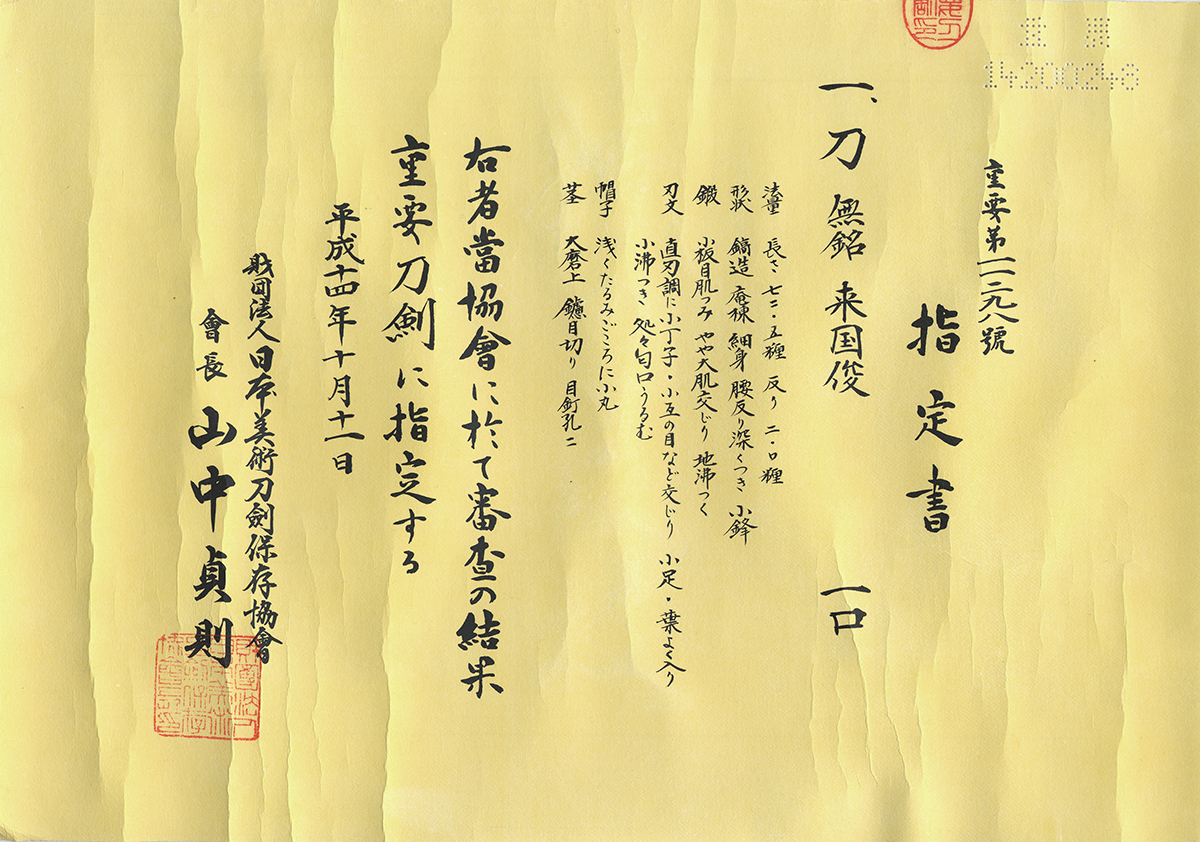 重要
14200248
重要第一一二九八號
指定書
一、刀 無銘 来国俊 一口
法量 長さ 七二・五糎 反り 二・〇糎
形状 鎬造 庵棟 細身 腰反り深くつき 小鋒
鍛 小板目肌つみ やや大肌交じり 地沸つく
刃文 直刃調に小丁子・小互の目など交じり 小足・葉よく入り
小沸つき 処々匂口うるむ
帽子 浅くたるみごころに小丸
茎 大磨上 鑢目切り 目釘孔二
右者當協會に於て審査の結果
重要刀剣に指定する
平成十四年十月十一日
財団法人日本美術刀劍保存協會
會長 山中貞則